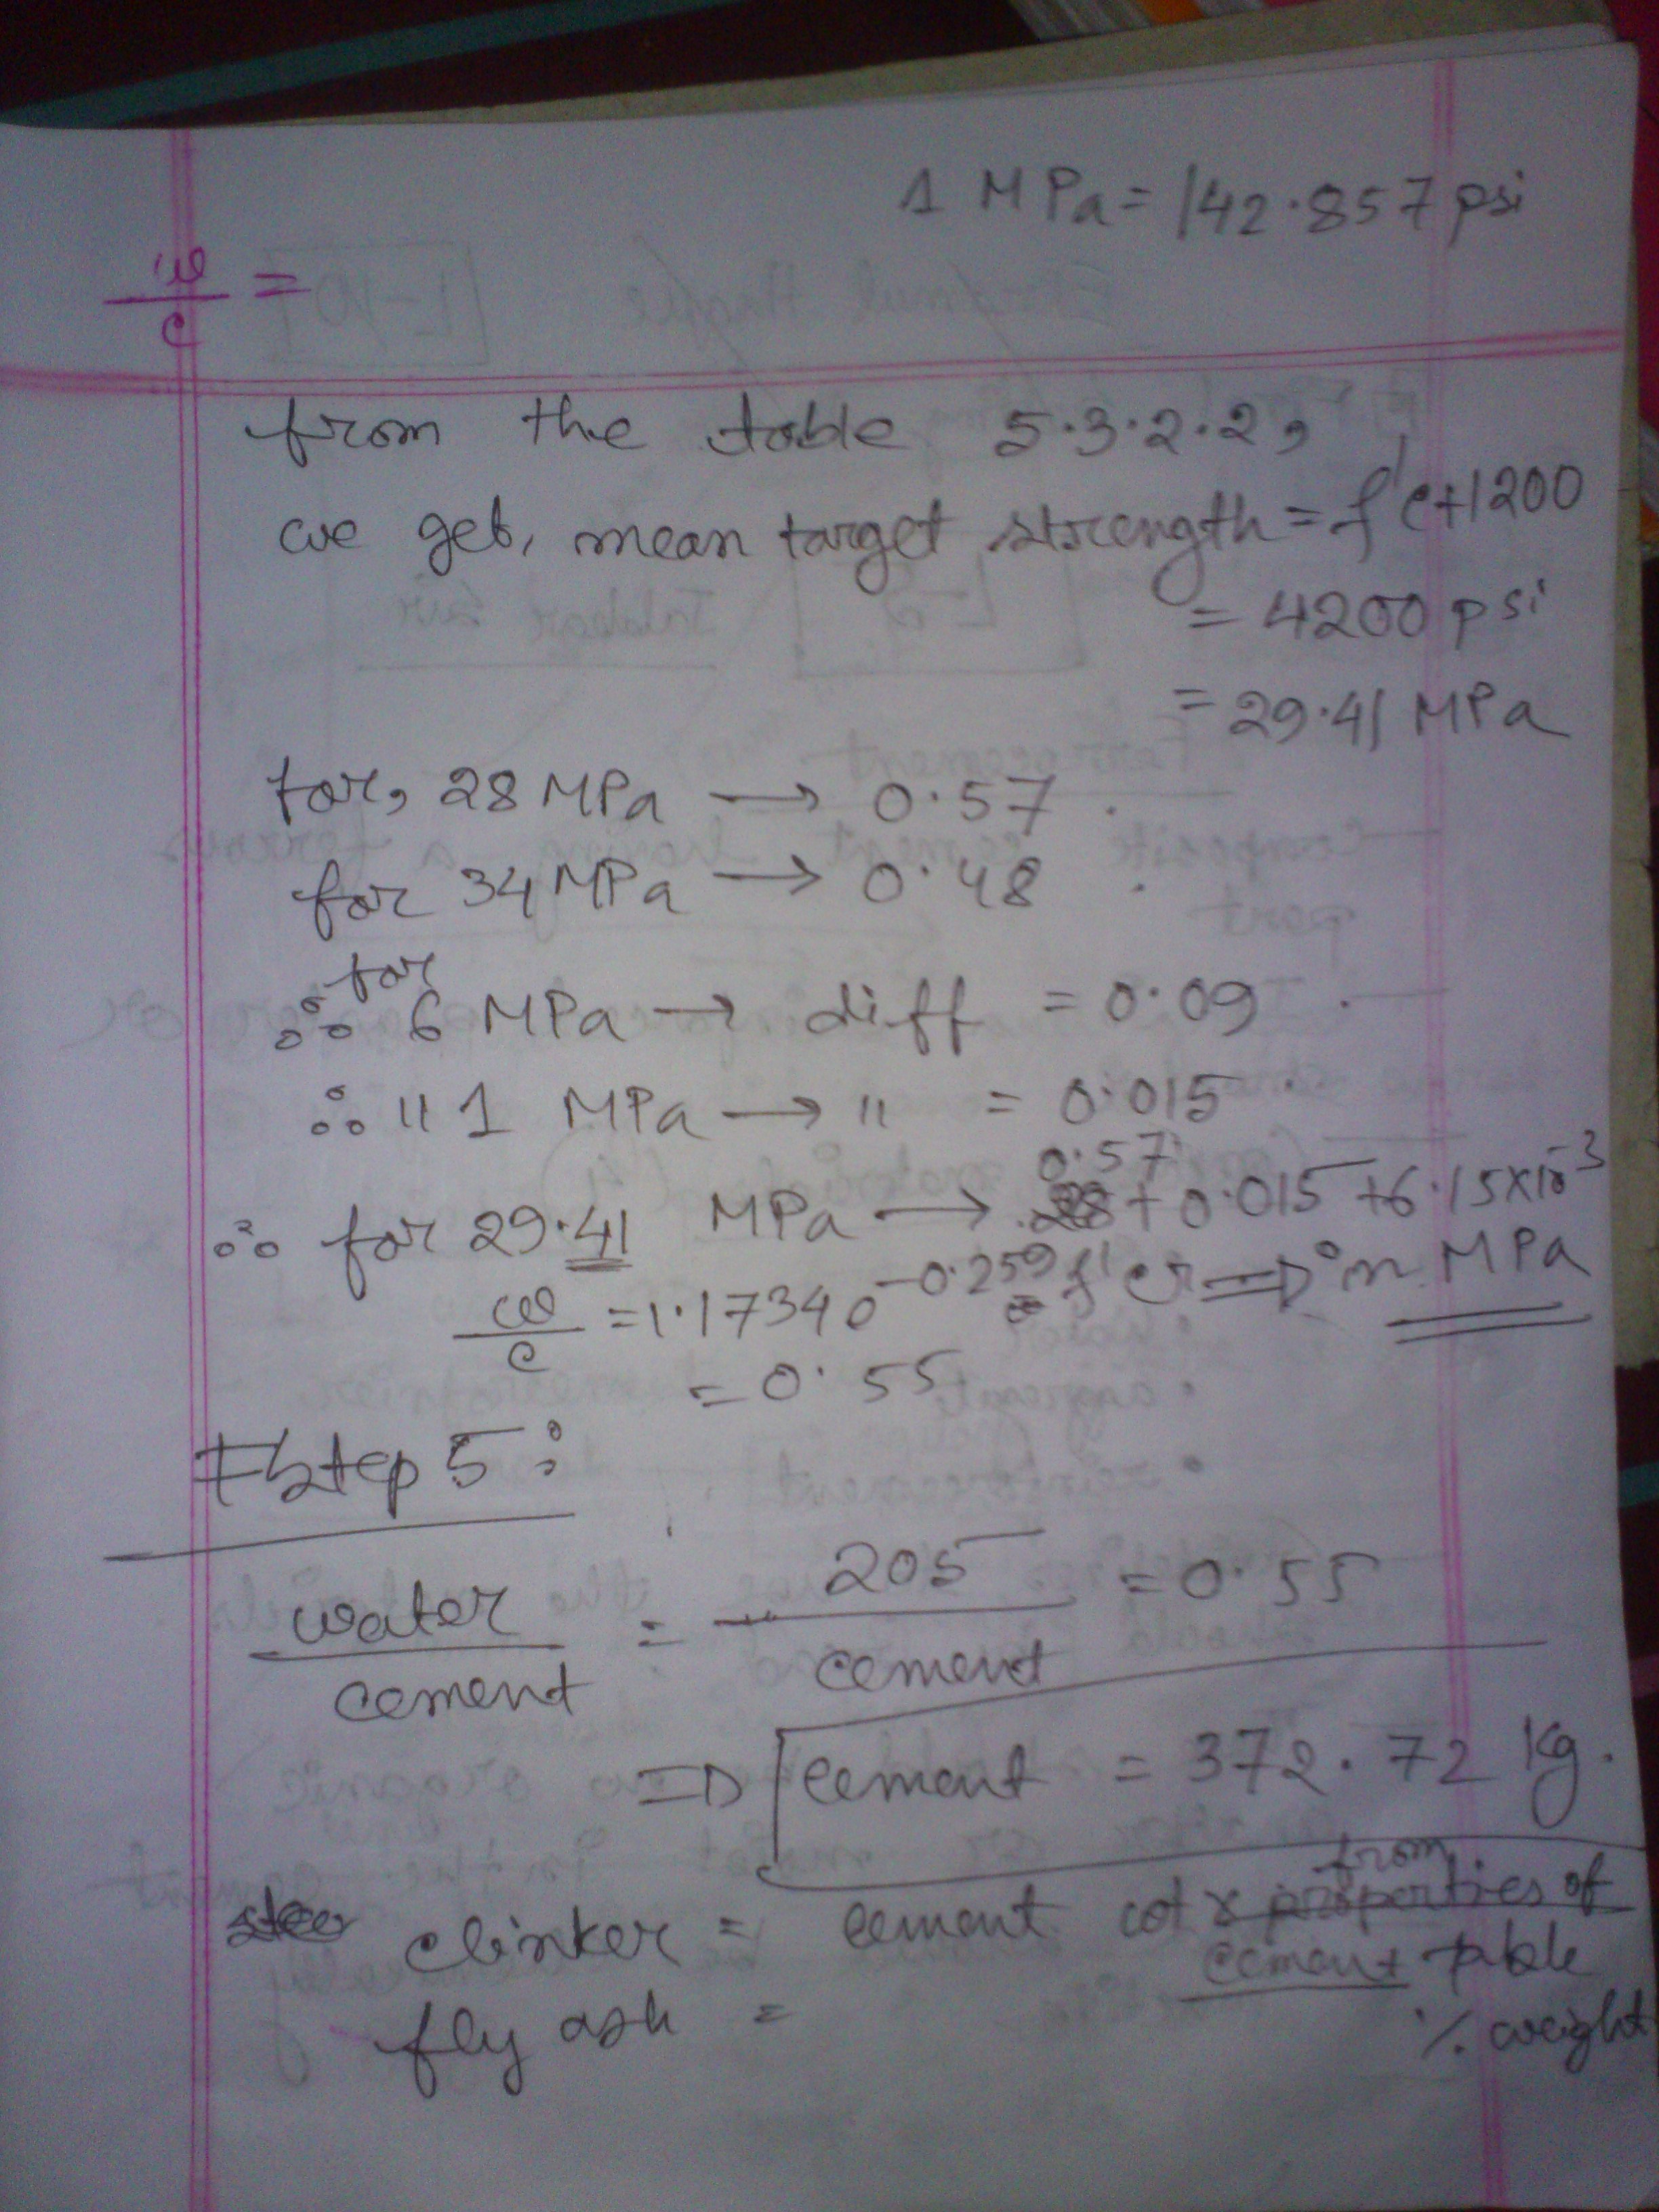 1 MPa = 142.857 psi
w/c =
from the table 5.3.2.2,
we get, mean target strength = f'c+1200
= 4200 psi
= 29.41 MPa
for, 28 MPa → 0.57
for 34 MPa → 0.48
∴ for 6 MPa → diff = 0.09
∴ " 1 MPa → " = 0.015
∴ for 29.41 MPa → 0.57 + 0.015 + 6.15×10⁻³
w/c = 1.1734 e^-0.259 f'cr ⇒ in MPa
= 0.55
Step 5:
water/cement = 205/cement = 0.55
⇒ cement = 372.72 Kg.
clinker = cement x from properties of
cement table
fly ash = % weight